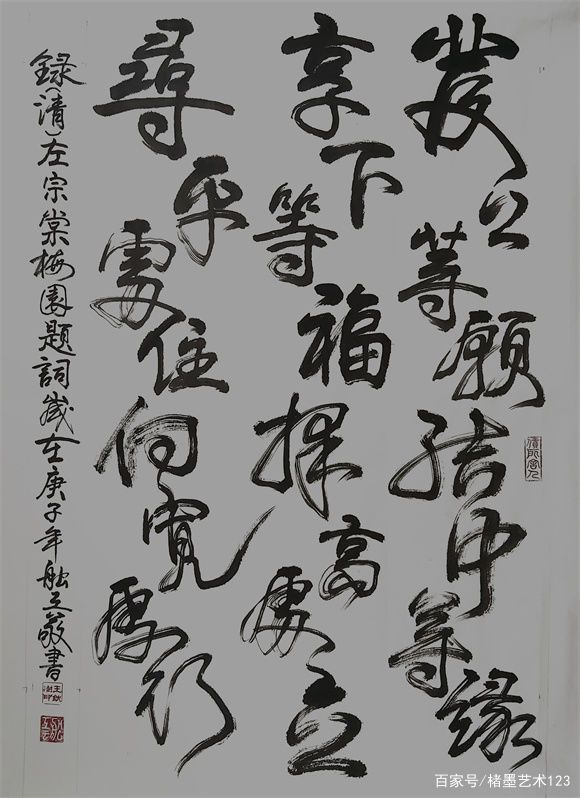 發上等願結中等緣
享下等福擇高處立
尋平處住向寬處行
錄(清)左宗棠梅園題詞歲在庚子年敬書
百家号/楮墨艺术123